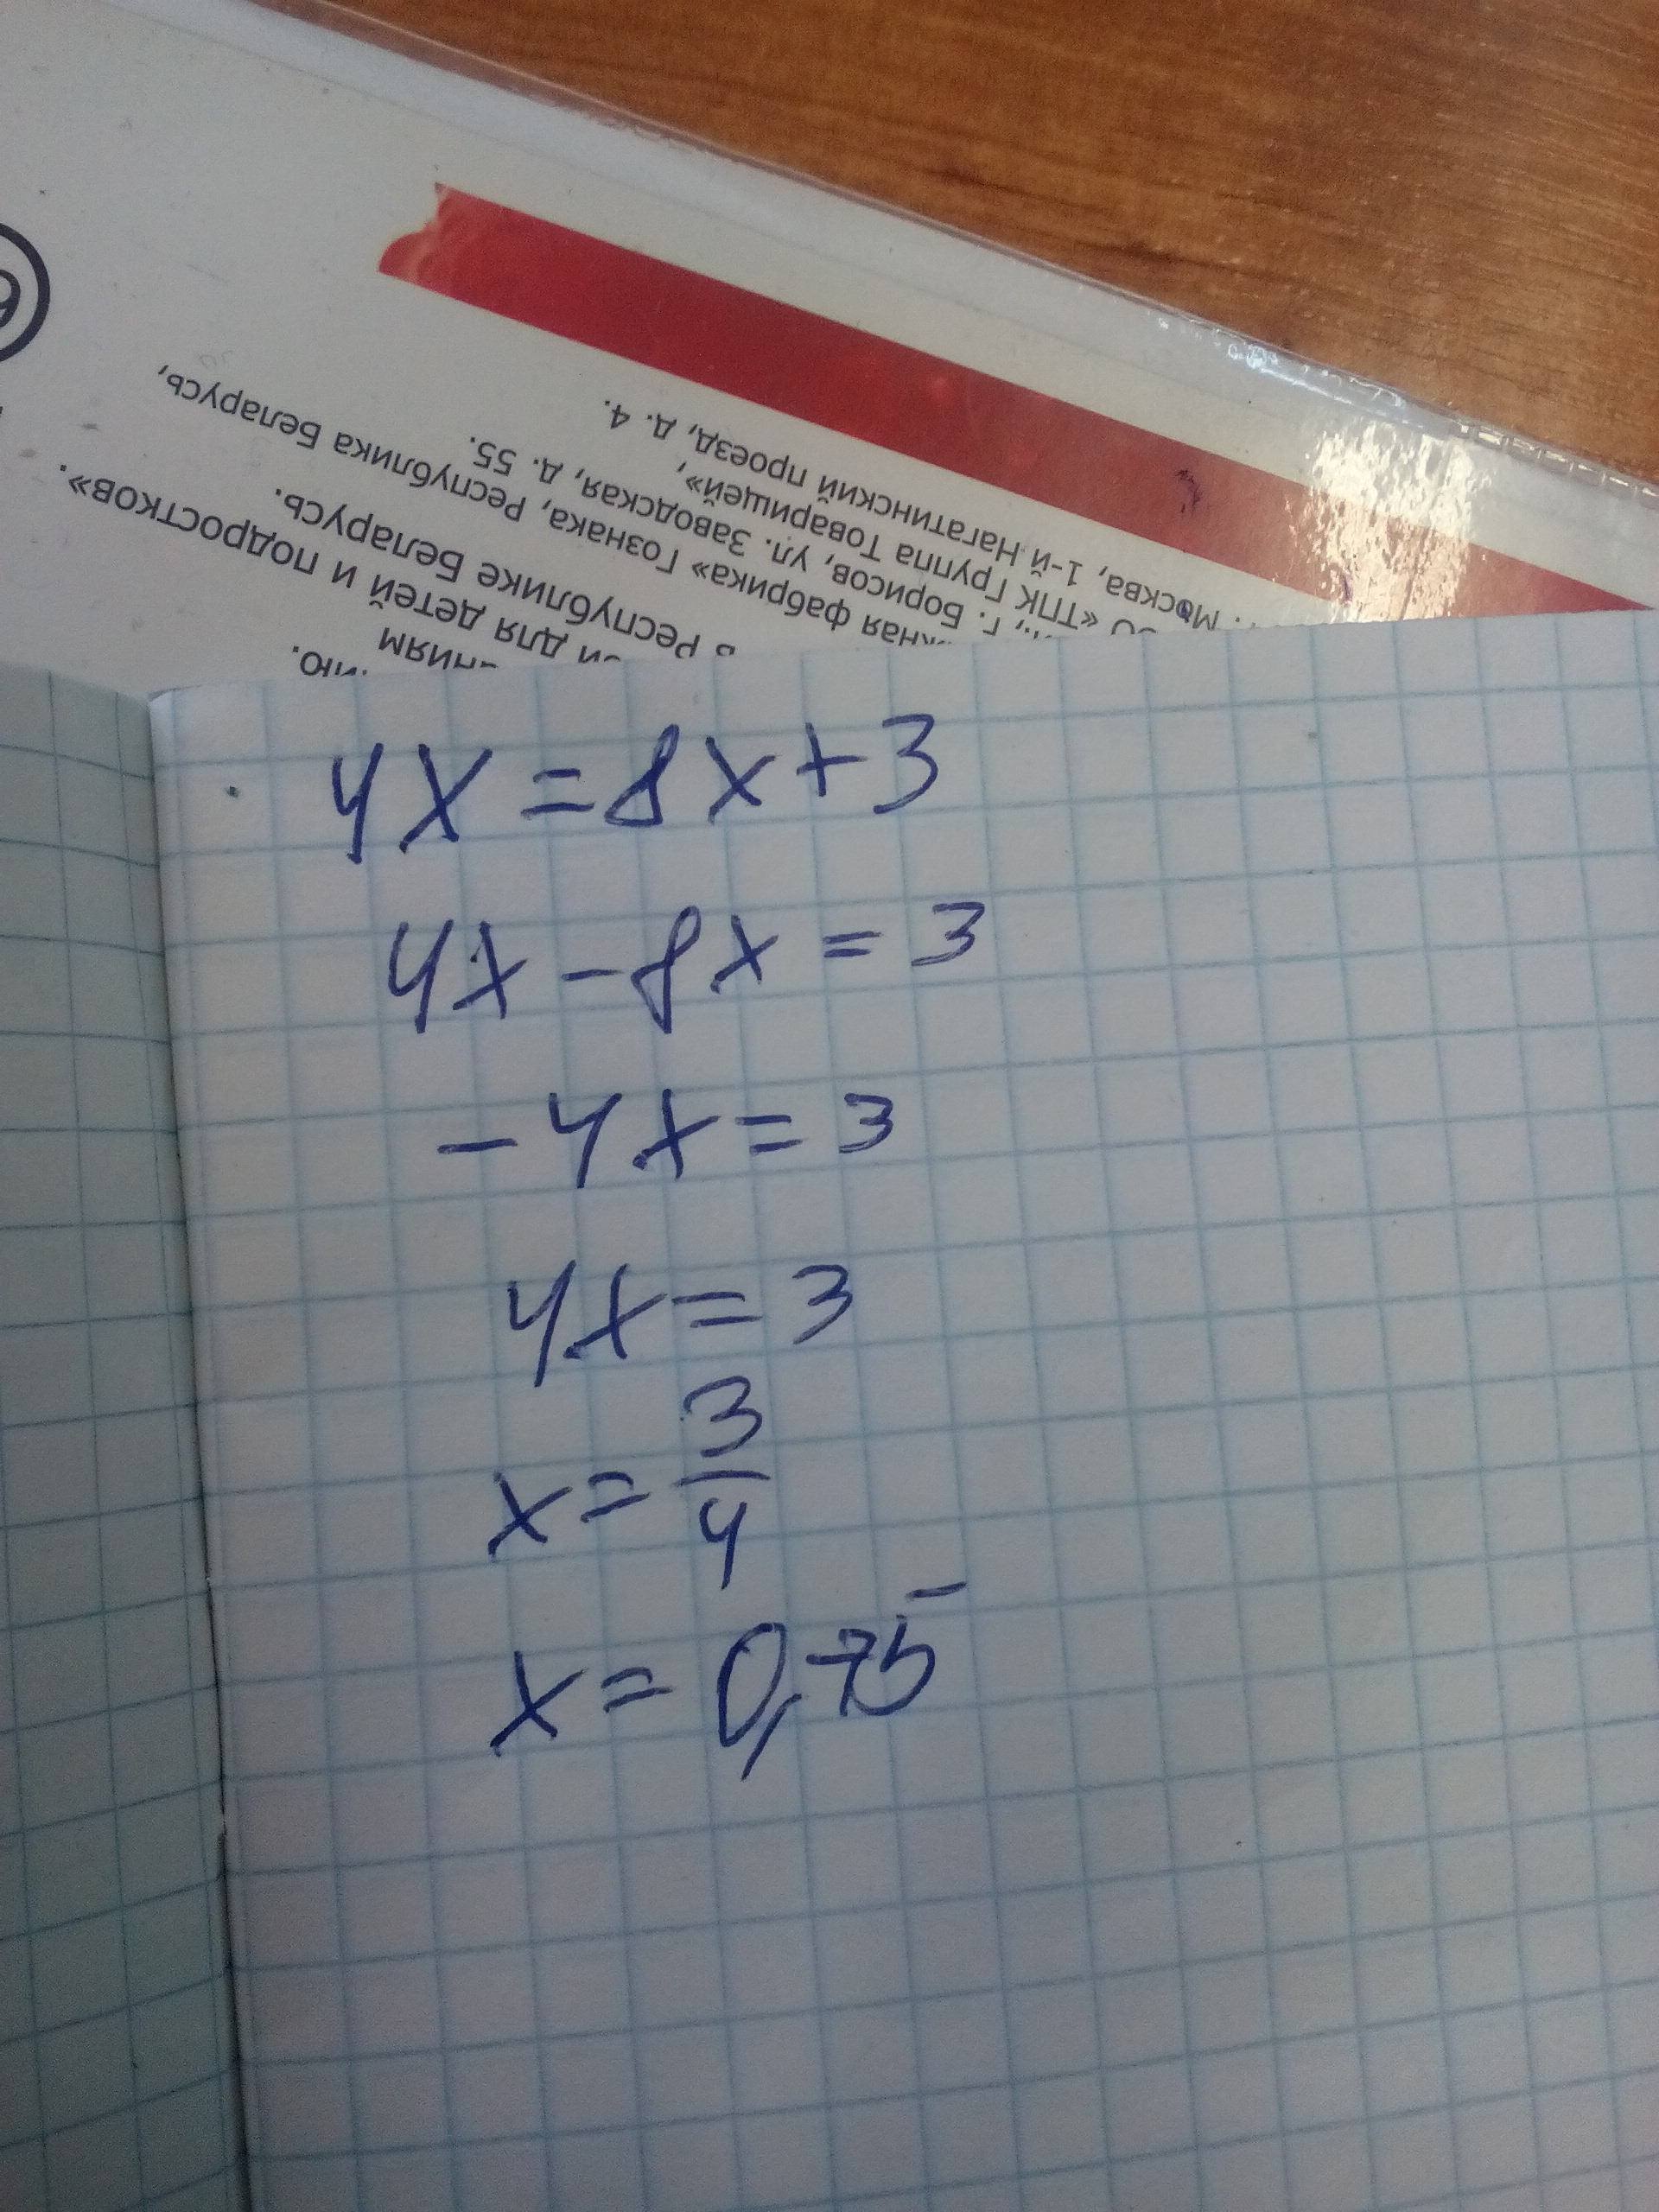 нию.
ниям
й для детей и подростков».
в Республике Беларусь.
жная фабрика» Гознака, Республика Беларусь,
г. Борисов, ул. Заводская, д. 55.
«ТПК Группа Товарищей»,
Москва, 1-й Нагатинский проезд, д. 4.
4x = 8x + 3
4x - 8x = 3
- 4x = 3
4x = 3
x = 3/4
x = 0,75